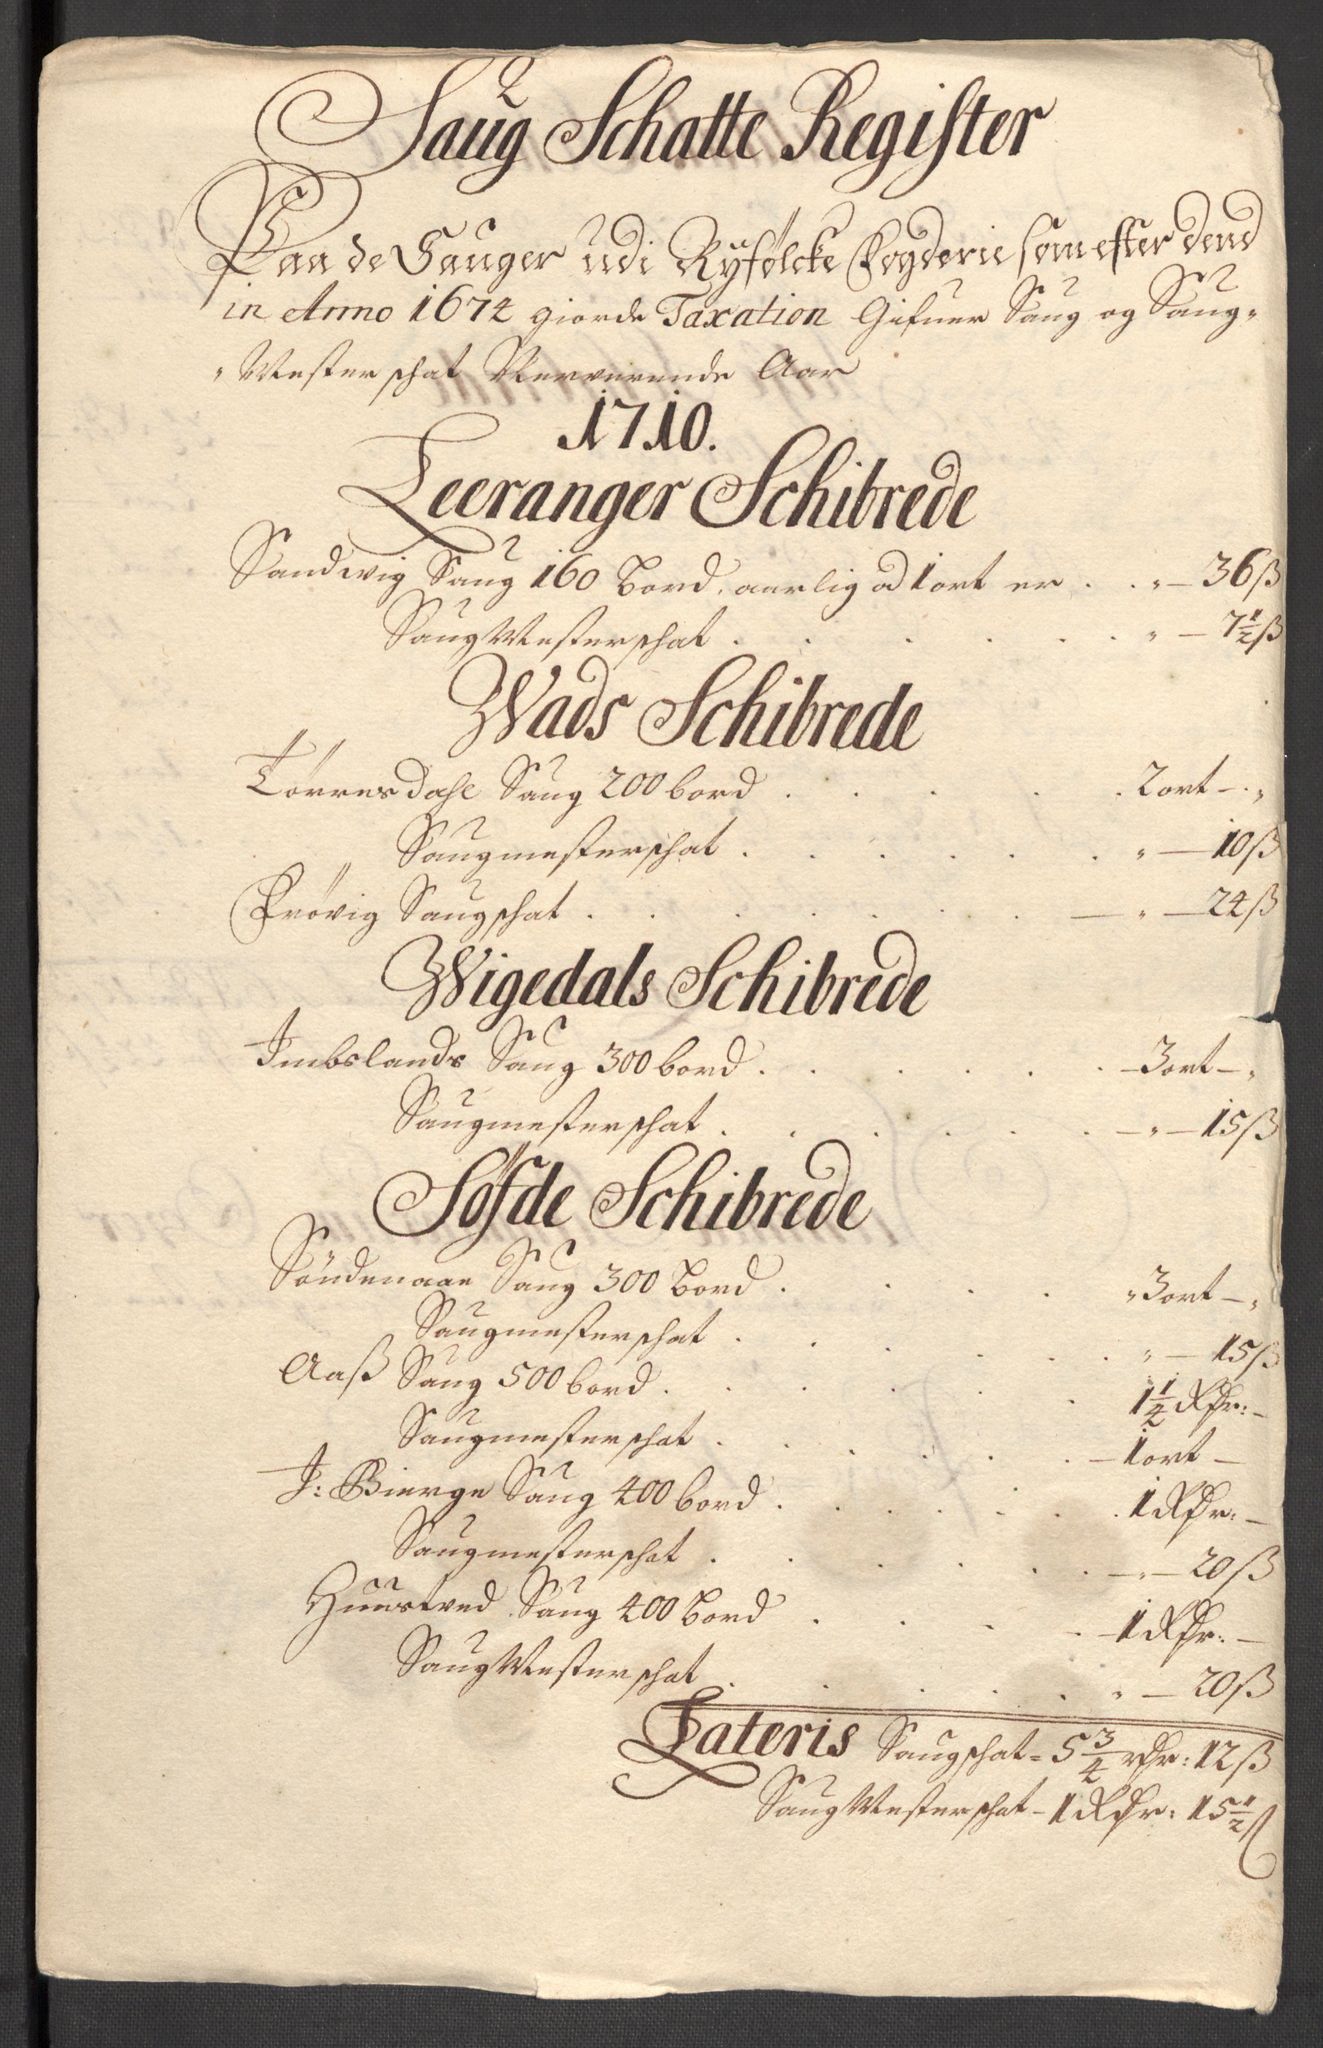 Saug Schatte Register
Paa de Sauger udi Ryfølcke Fogderie som efter dend
in Anno 1674 giorde Taxation Gifuer Saug og Saug-
Mester schat Nerverende Aar
1710.
Leeranger Schibrede
Sandwig Saug 160 bord, aarlig ad 1 ort er . . " — 36 ß
SaugMester schat . . . . . . " — 7 1/2 ß
Wads Schibrede
Tørresdahl Saug 200 bord . . . . 2 ort — "
Saugmester schat . . . . . . " — 10 ß
Frøvig Saugschat . . . . . . . — " — 24 ß
Wigedals Schibrede
Imbslands Saug 300 bord . . . . . . — 3 ort — "
Saugmester schat . . . . . . — " — 15 ß
Søfde Schibrede
Søndenaae Saug 300 bord . . . . " 3 ort — "
Saugmester schat . . . . . . " — 15 ß
Aaß Saug 500 bord . . . . . 1 1/4 Rdr: —
Saugmester schat . . . . . . — 1 ort —
I: Bierge Saug 400 bord . . . . . . 1 Rdr: —
Saugmester schat . . . . . . — " — 20 ß
Huustved Saug 400 bord . . . . — 1 Rdr: —
SaugMester schat . . . . . " — 20 ß
Lateris Saugschat = 5 3/4 rdr: 12 ß
SaugMester schat — 1 Rdr: 15 1/2 ß